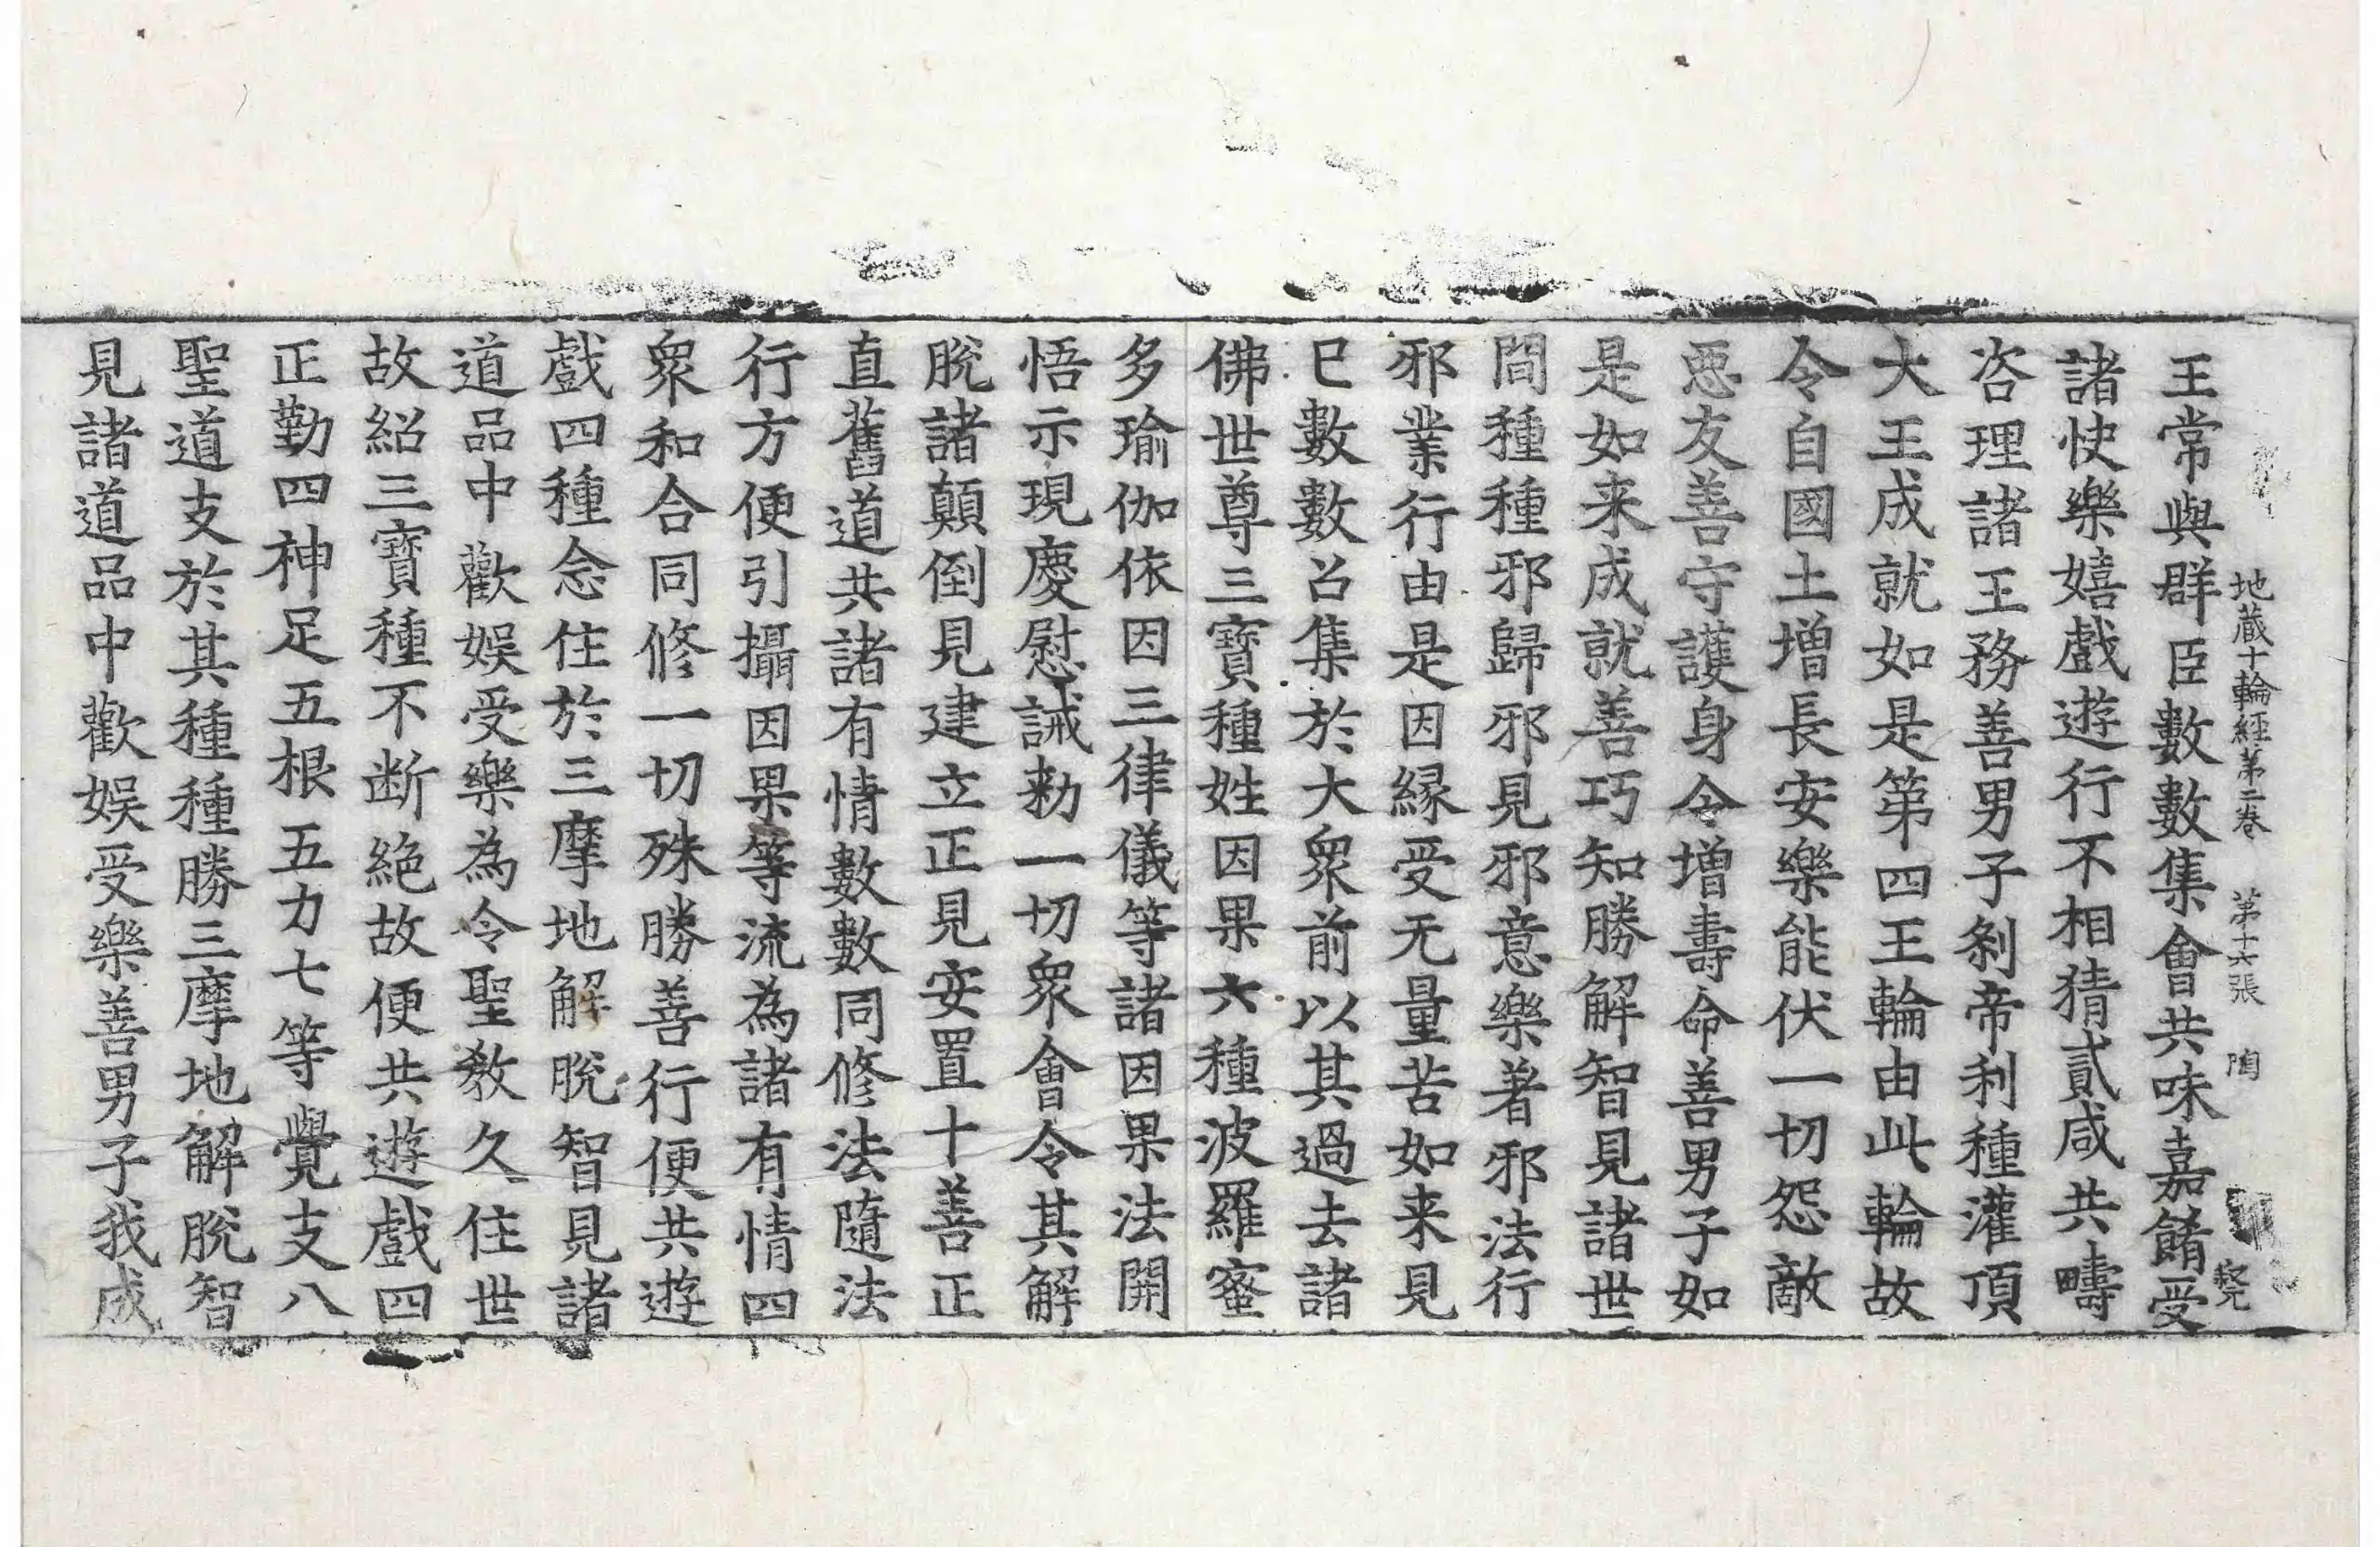 地藏十輪經第二卷 第十六張 陶
王常與群臣數數集會共味嘉餚受
諸快樂嬉戲遊行不相猜貳咸共疇
咨理諸王務善男子剎帝利種灌頂
大王成就如是第四王輪由此輪故
令自國土增長安樂能伏一切怨敵
惡友善守護身令增壽命善男子如
是如来成就善巧知勝解智見諸世
間種種邪歸邪見邪意樂著邪法行
邪業行由是因縁受无量苦如来見
已數數召集於大眾前以其過去諸
佛世尊三寶種姓因果六種波羅蜜
多瑜伽依因三律儀等諸因果法開
悟示現慶慰誡勑一切眾會令其解
脫諸顛倒見建立正見安置十善正
直舊道共諸有情數數同修法隨法
行方便引攝因果等流為諸有情四
眾和合同修一切殊勝善行便共遊
戲四種念住於三摩地解脫智見諸
道品中歡娛受樂為令聖教久住世
故紹三寶種不断絕故便共遊戲四
正勤四神足五根五力七等覺支八
聖道支於其種種勝三摩地解脫智
見諸道品中歡娛受樂善男子我成